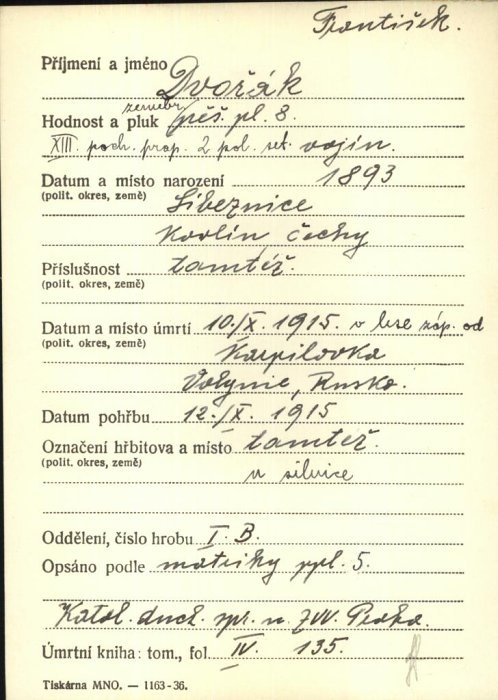 František.
Příjmení a jméno Dvořák
zeměbr.
Hodnost a pluk pěš. pl. 8.
XIII. poch. prap. 2 pol. set. vojín.
Datum a místo narození 1893
(polit. okres, země) Líbeznice
Karlín Čechy
Příslušnost tamtéž.
(polit. okres, země)
Datum a místo úmrtí 10./X. 1915. v lese záp. od
(polit. okres, země) Karpilovka
Volynie, Rusko.
Datum pohřbu 12./X. 1915
Označení hřbitova a místo tamtéž.
(polit. okres, země) u silnice
Oddělení, číslo hrobu I. B.
Opsáno podle matriky ppl. 5.
Katol. duch. spr. u ZVV Praha.
Úmrtní kniha: tom., fol. IV. 135.
Tiskárna MNO. — 1163-36.